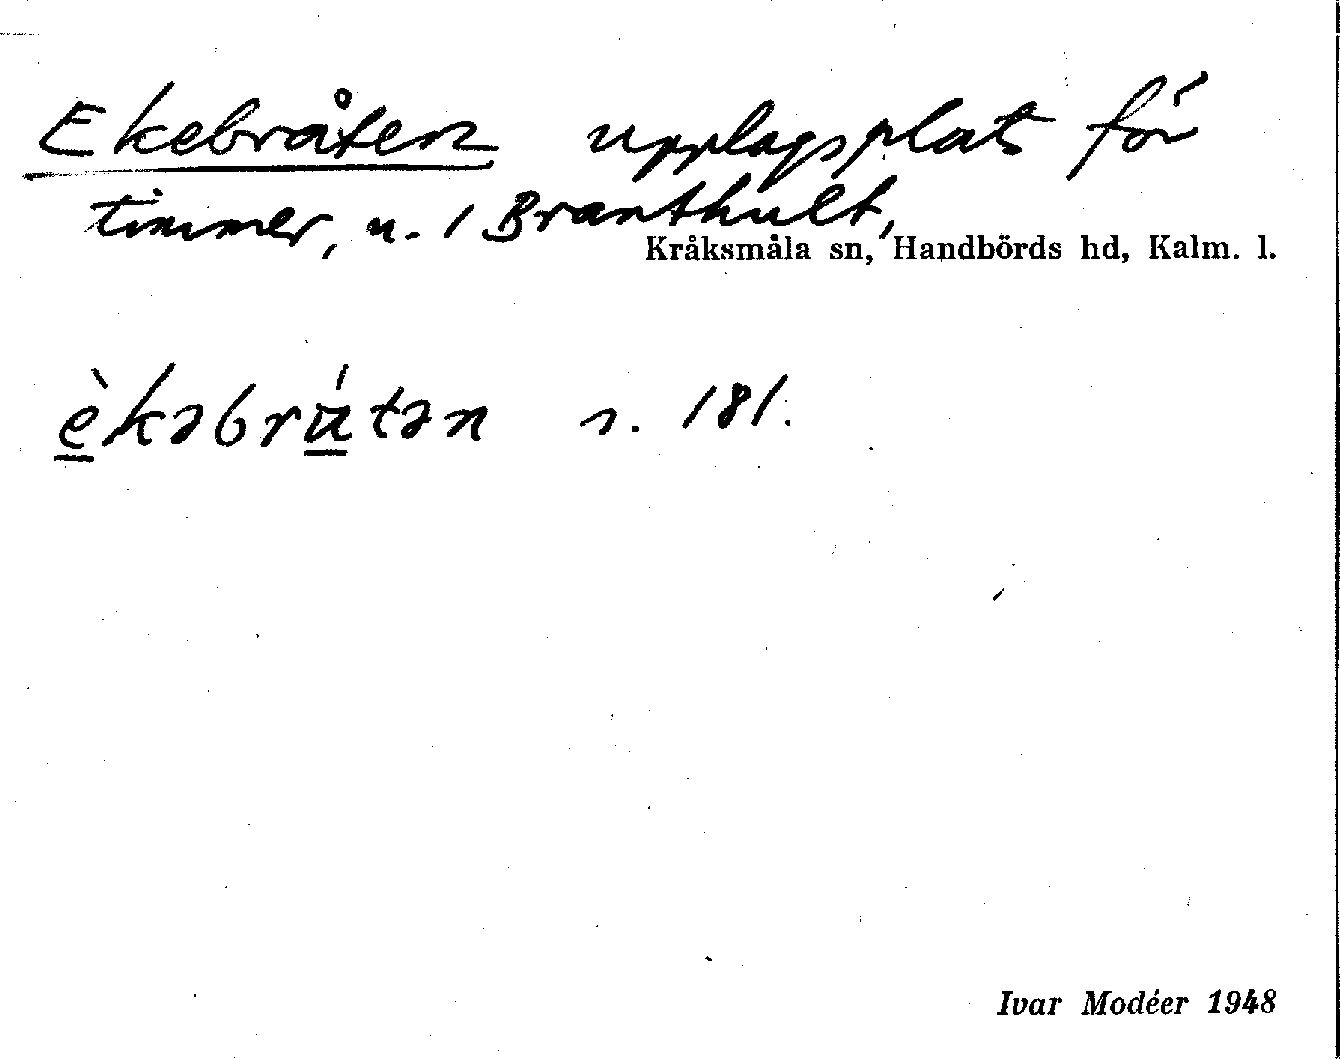 Ekebråten upplagsplats för
timmer, u. 1 Branthult,
Kråksmåla sn, Handbörds hd, Kalm. l.
è̲kəbrá̲tən s. 181.
Ivar Modéer 1948